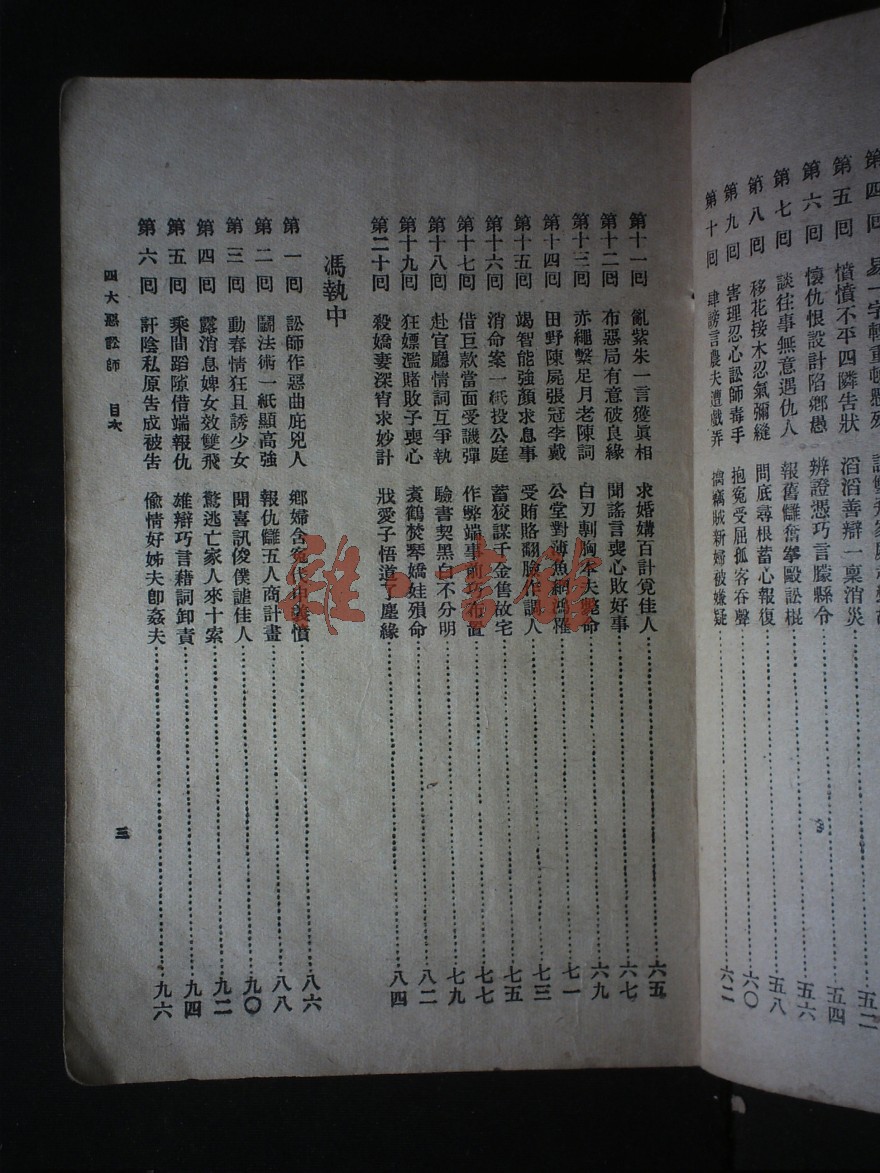 第四回 易一字輕重
第五回 憤憤不平四隣告狀 滔滔善辯一稟消災 五四
第六回 懷仇恨設計陷鄉愚 辨證憑巧言朦縣令 五六
第七回 談往事無意遇仇人 報舊讎奮拳毆訟棍 五八
第八回 移花接木忍氣彌縫 問底尋根蓄心報復 六〇
第九回 害理忍心訟師毒手 抱冤受屈孤客吞聲 六二
第十回 肆謗言農夫遭戲弄 擒竊賊新婦被嫌疑
第十一回 亂紫朱一言獲眞相 求婚媾百計覓佳人 六五
第十二回 布惡局有意破良緣 聞謠言喪心敗好事 六七
第十三回 赤繩繫足月老陳詞 白刃剚胸本夫斃命 六九
第十四回 田野陳屍張冠李戴 公堂對薄魚網鴻罹 七一
第十五回 竭智能強顔求息事 受賄賂翻臉作調人 七三
第十六回 消命案一紙投公庭 蓄狡謀千金售故宅 七五
第十七回 借巨款當面受譏彈 作弊端事前巧布置 七七
第十八回 赴官廳情詞互爭執 驗書契黑白不分明 七九
第十九回 狂嫖濫賭敗子喪心 煑鶴焚琴嬌娃殞命 八二
第二十回 殺嬌妻深宵求妙計 戕愛子悟道了塵緣 八四
馮執中
第一回 訟師作惡曲庇兇人 鄉婦含冤代申義憤 八六
第二回 鬭法術一紙顯高強 報仇讎五人商計畫 八八
第三回 動春情狂且誘少女 聞喜訊俊僕謔佳人 九〇
第四回 露消息婢女效雙飛 驚逃亡家人來十索 九二
第五回 乘間蹈隙借端報仇 雄辯巧言藉詞卸責 九四
第六回 訐陰私原告成被告 偸情好姊夫卽姦夫 九六
四大惡訟師 目次
三
雜·書館